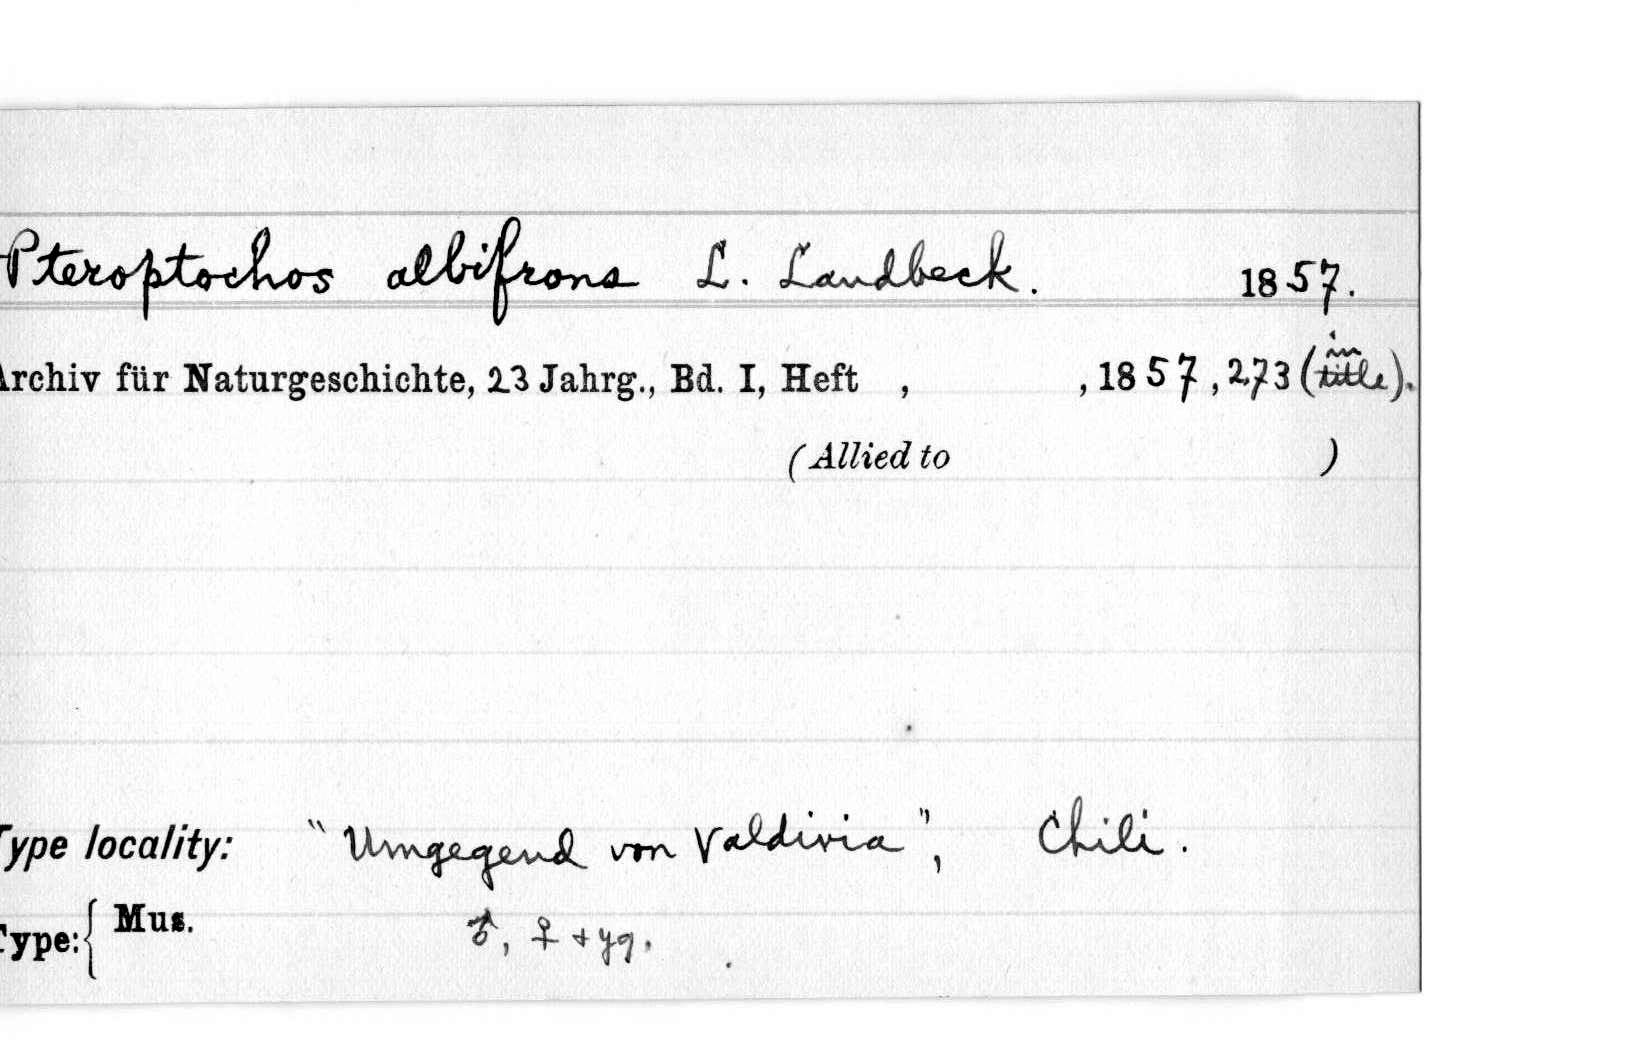 Pteroptochos albifrons L. Landbeck. 1857.
Archiv für Naturgeschichte, 23 Jahrg., Bd. I, Heft , , 1857, 273 (in title).
(Allied to )
Type locality: "Umgegend von Valdivia", Chili.
Type: { Mus. ♂, ♀ + yg.